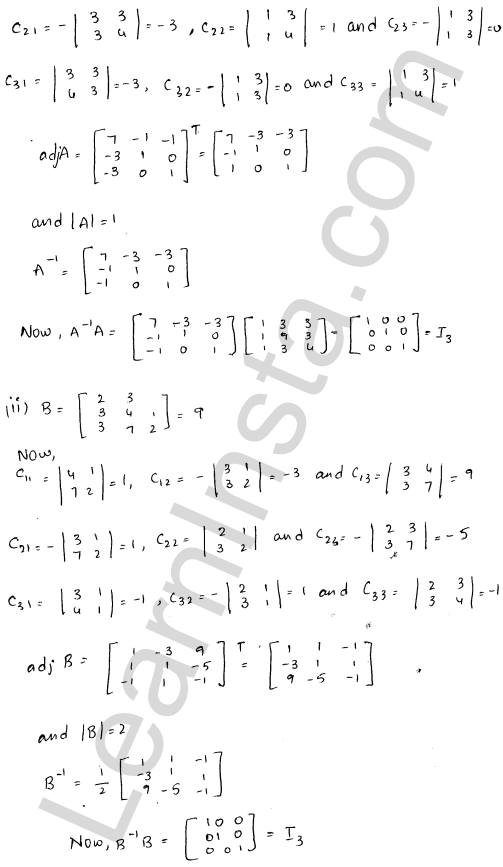 C21 = - | 3 3 ; 3 4 | = -3 , C22 = | 1 3 ; 1 4 | = 1 and C23 = - | 1 3 ; 1 3 | = 0
C31 = | 3 3 ; 4 3 | = -3, C32 = - | 1 3 ; 1 3 | = 0 and C33 = | 1 3 ; 1 4 | = 1
adjA = [ 7 -1 -1 ; -3 1 0 ; -3 0 1 ]^T = [ 7 -3 -3 ; -1 1 0 ; 1 0 1 ]
and |A| = 1
A^-1 = [ 7 -3 -3 ; -1 1 0 ; -1 0 1 ]
Now, A^-1 A = [ 7 -3 -3 ; -1 1 0 ; -1 0 1 ] [ 1 3 3 ; 1 9 3 ; 1 3 4 ] = [ 1 0 0 ; 0 1 0 ; 0 0 1 ] = I3
(ii) B = [ 2 3 ; 3 4 1 ; 3 7 2 ] = 9
Now,
C11 = | 4 1 ; 7 2 | = 1, C12 = - | 3 1 ; 3 2 | = -3 and C13 = | 3 4 ; 3 7 | = 9
C21 = - | 3 1 ; 7 2 | = 1, C22 = | 2 1 ; 3 2 | and C23 = - | 2 3 ; 3 7 | = -5
C31 = | 3 1 ; 4 1 | = -1, C32 = - | 2 1 ; 3 1 | = 1 and C33 = | 2 3 ; 3 4 | = -1
adj B = [ 1 -3 9 ; 1 1 -5 ; -1 1 -1 ]^T = [ 1 1 -1 ; -3 1 1 ; 9 -5 -1 ]
and |B| = 2
B^-1 = 1/2 [ 1 1 -1 ; -3 1 1 ; 9 -5 -1 ]
Now, B^-1 B = [ 1 0 0 ; 0 1 0 ; 0 0 1 ] = I3
LearnInsta.com